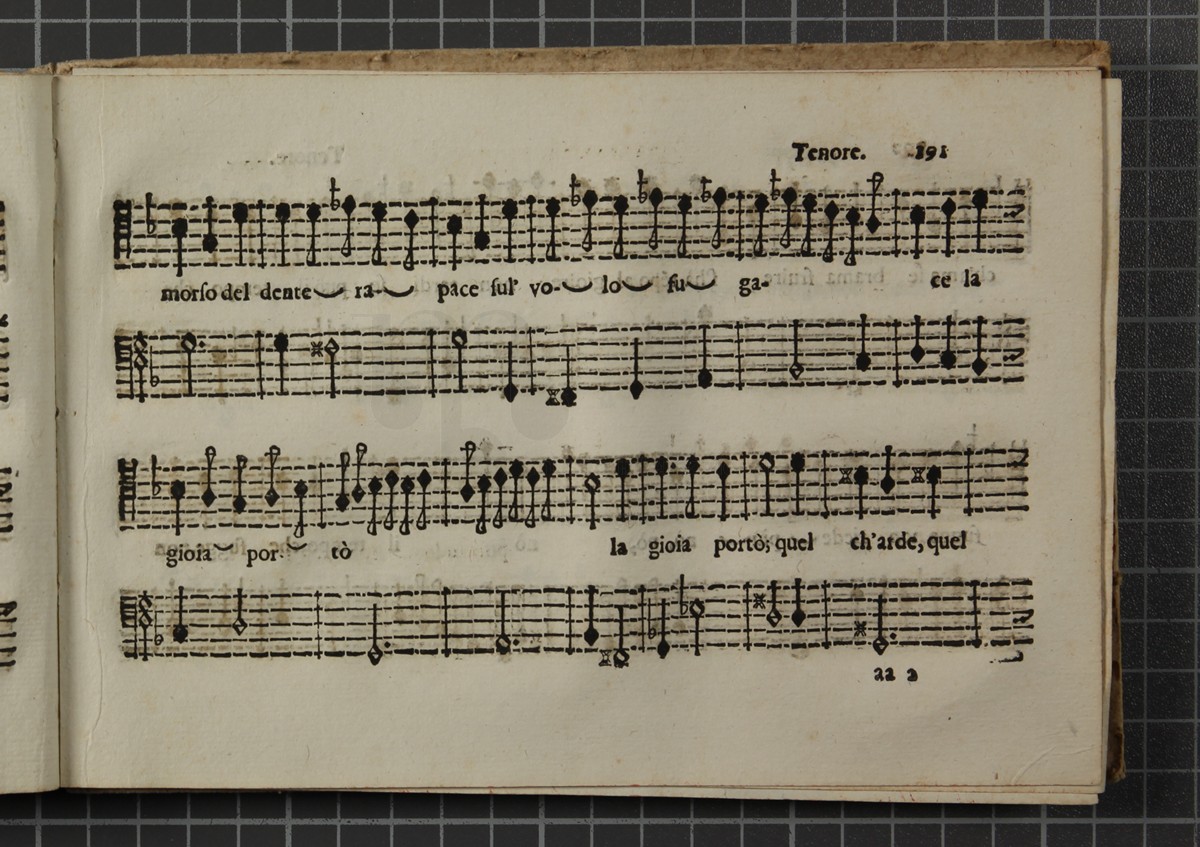 Tenore. 191
morſo del dente ra- pace ſul' vo- lo fu ga- ce la
gioia por- tò la gioia portò; quel ch'arde, quel
aa 2